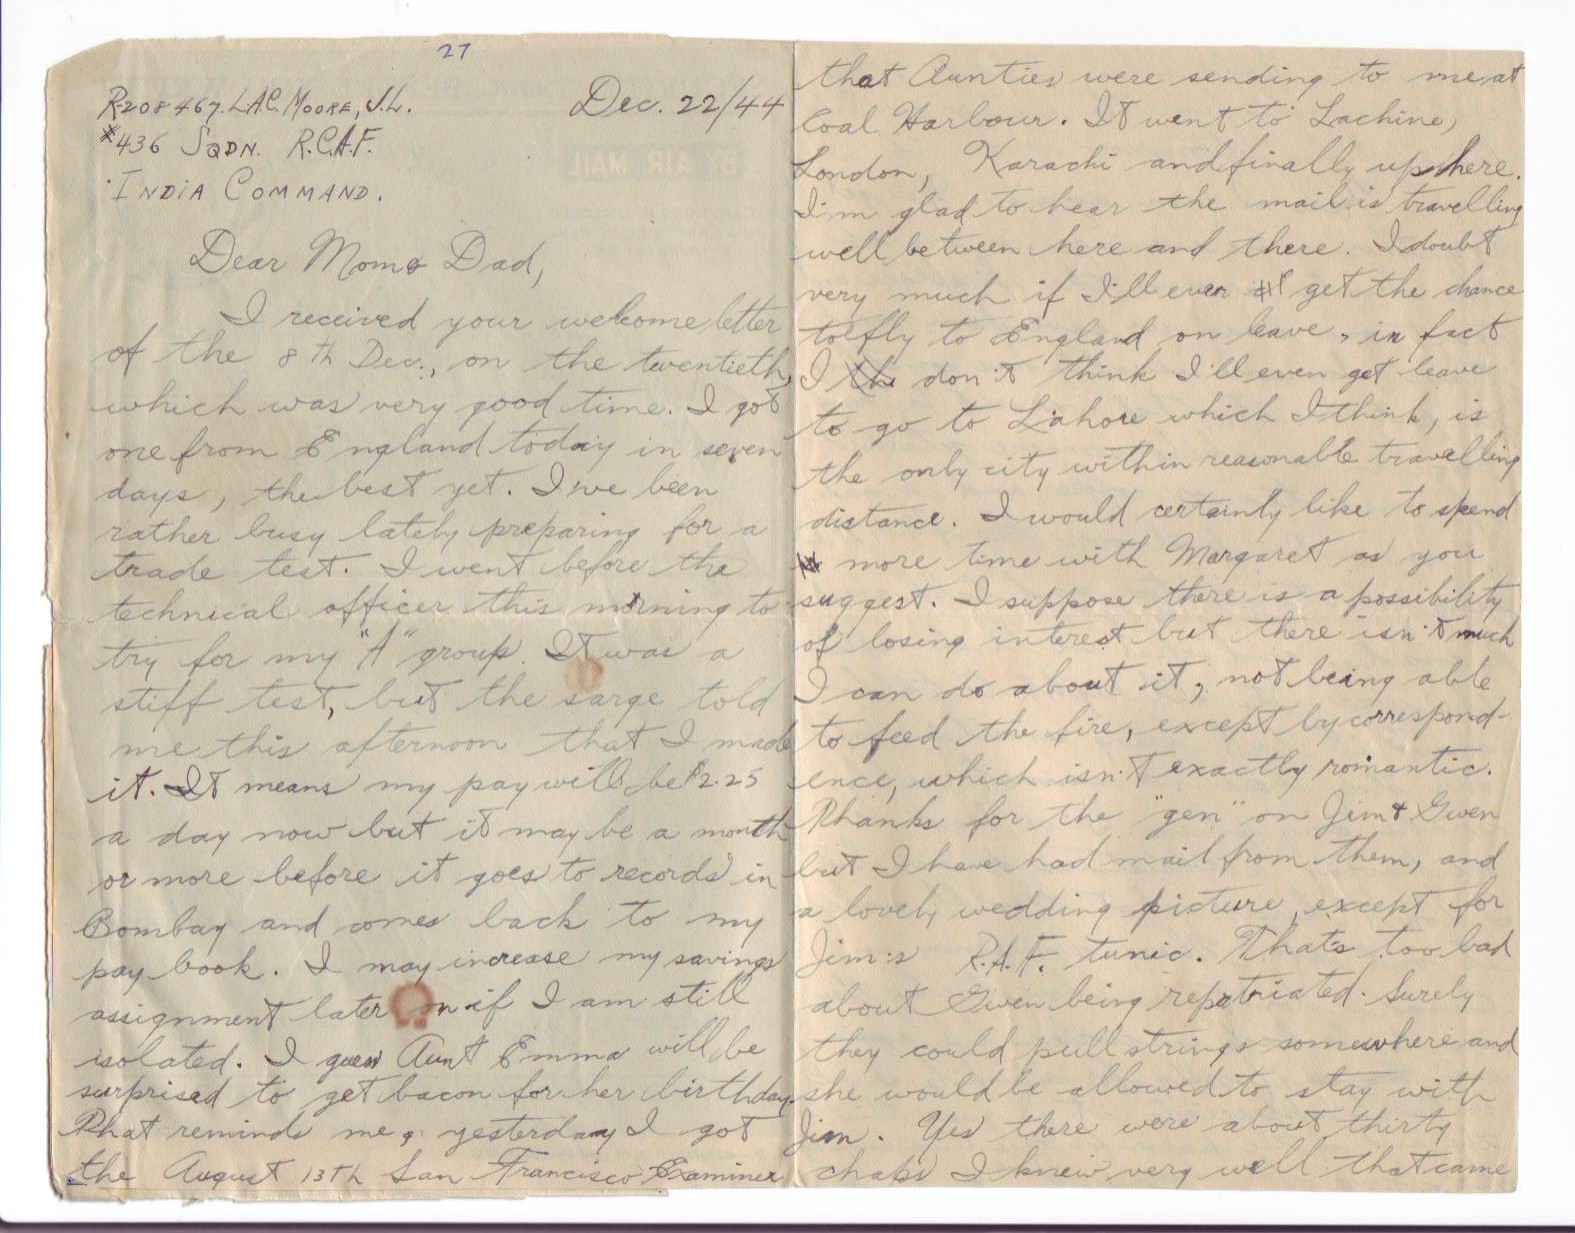 27
R208467. L.A.C. Moore, J.L.
Dec. 22/44
#436 Sqdn. R.C.A.F.
India Command.
Dear Mom & Dad,
I received your welcome letter
of the 8th Dec., on the twentieth,
which was very good time. I got
one from England today in seven
days, the best yet. I've been
rather busy lately preparing for a
trade test. I went before the
technical officer this morning to
try for my "A" group. It was a
stiff test, but the sarge told
me this afternoon that I made
it. It means my pay will be $2.25
a day now but it may be a month
or more before it goes to records in
Bombay and comes back to my
pay book. I may increase my savings
assignment later on if I am still
isolated. I guess Aunt Emma will be
surprised to get bacon for her birthday.
That reminds me, yesterday I got
the August 13th San Francisco Examiner
that Aunties were sending to me at
Coal Harbour. It went to Lachine,
London, Karachi and finally up here.
I'm glad to hear the mail is travelling
well between here and there. I doubt
very much if I'll ever get the chance
to fly to England on leave, in fact
I don't think I'll even get leave
to go to Lahore which I think, is
the only city within reasonable travelling
distance. I would certainly like to spend
more time with Margaret as you
suggest. I suppose there is a possibility
of losing interest but there isn't much
I can do about it, not being able
to feed the fire, except by correspond-
ence, which isn't exactly romantic.
Thanks for the "gen" on Jim & Gwen
but I have had mail from them, and
a lovely wedding picture, except for
Jim's R.A.F. tunic. That's too bad
about Gwen being repatriated. Surely
they could pull strings somewhere and
she would be allowed to stay with
Jim. Yes there were about thirty
chaps I knew very well that came